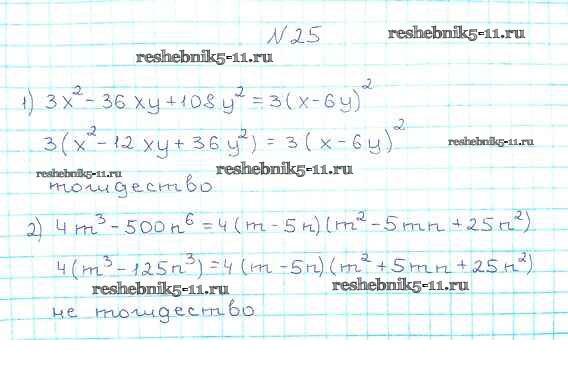 №25
reshebnik5-11.ru
reshebnik5-11.ru
1) 3x² - 36xy + 108y² = 3(x - 6y)²
3(x² - 12xy + 36y²) = 3(x - 6y)²
reshebnik5-11.ru
reshebnik5-11.ru
reshebnik5-11.ru
тождество
2) 4m³ - 500n⁶ = 4(m - 5n)(m² - 5mn + 25n²)
4(m³ - 125n³) = 4(m - 5n)(m² + 5mn + 25n²)
reshebnik5-11.ru
reshebnik5-11.ru
не тождество